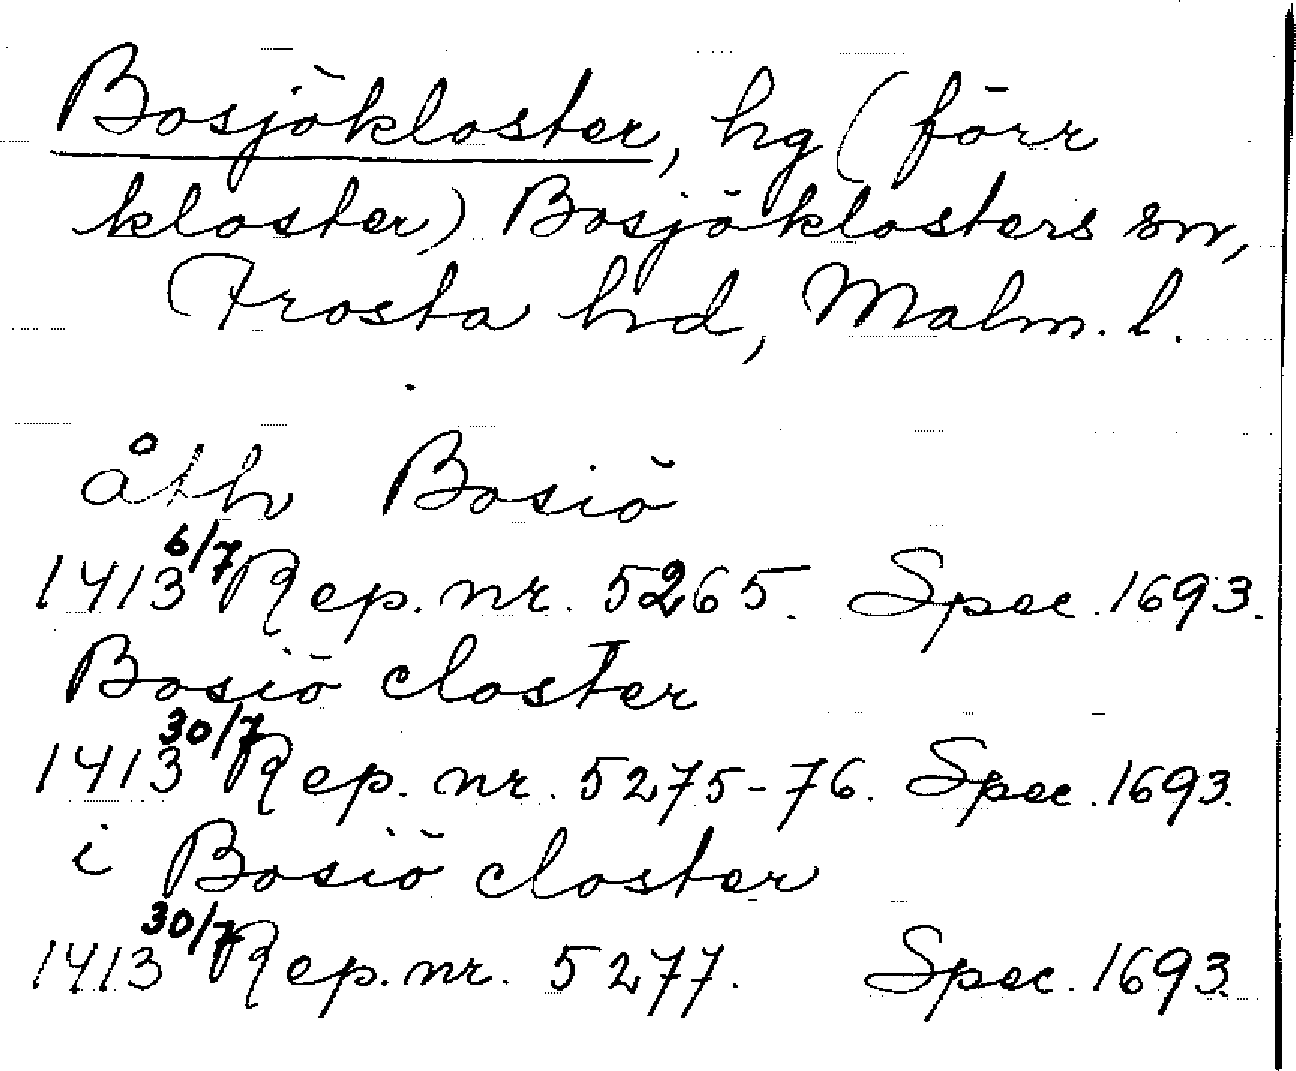 Bosjökloster, hg (förr
kloster) Bosjöklosters sn,
Frosta hd, Malm. l.
åth Bosiö
1413 6/7 Rep. nr. 5265. Spec. 1693.
Bosiö closter
1413 30/7 Rep. nr. 5275-76. Spec. 1693.
i Bosiö closter
1413 30/7 Rep. nr. 5277. Spec. 1693.